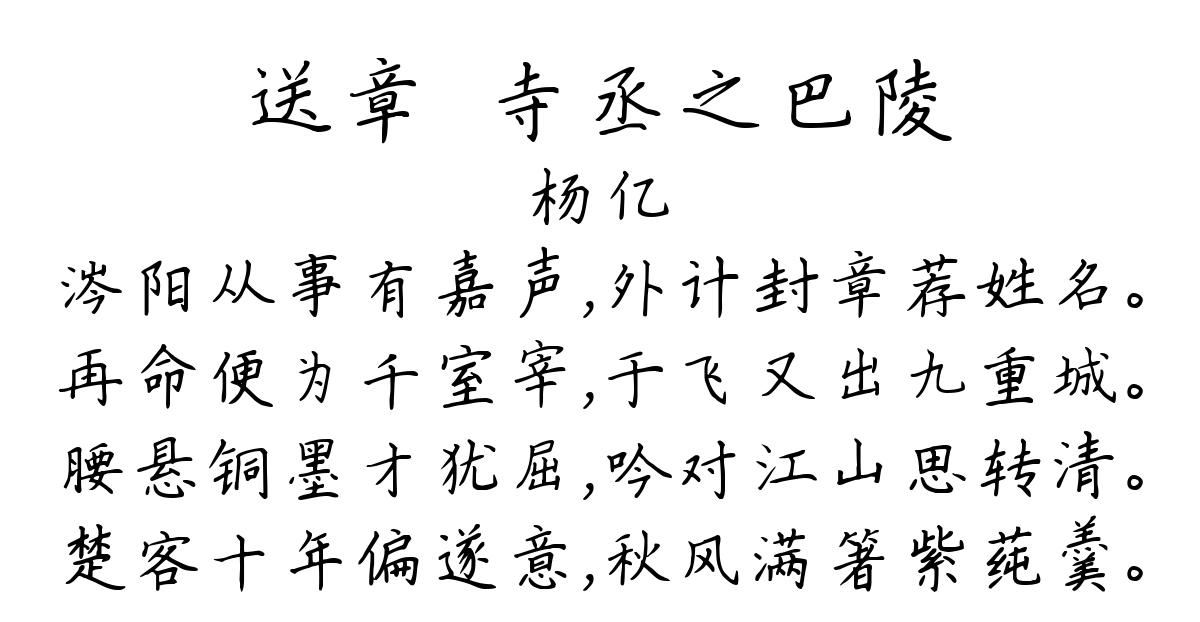 送章 寺丞之巴陵
杨亿
涔阳从事有嘉声,外计封章荐姓名。
再命便为千室宰,于飞又出九重城。
腰悬铜墨才犹屈,吟对江山思转清。
楚客十年偏遂意,秋风满箸紫莼羹。